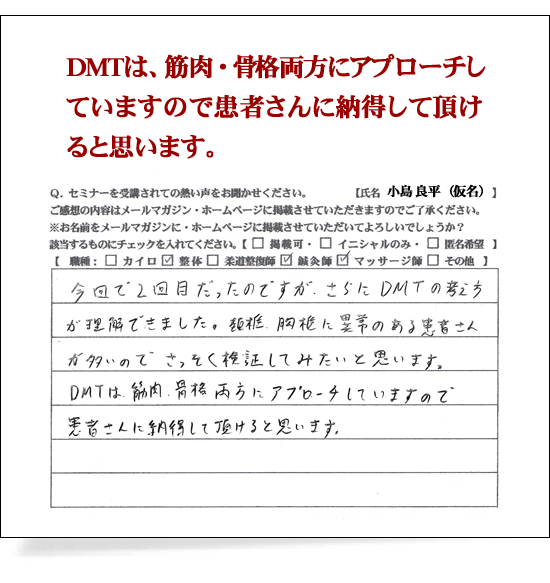 DMTは、筋肉・骨格両方にアプローチし
ていますので患者さんに納得して頂け
ると思います。
Q. セミナーを受講されての熱い声をお聞かせください。 【氏名 小島 良平（仮名）】
ご感想の内容はメールマガジン・ホームページに掲載させていただきますのでご了承ください。
※お名前をメールマガジンに・ホームページに掲載させていただいてよろしいでしょうか？
該当するものにチェックを入れてください。【 □ 掲載可・ □ イニシャルのみ・ □ 匿名希望 】
【 職種： □ カイロ ☑ 整体 □ 柔道整復師 ☑ 鍼灸師 ☑ マッサージ師 □ その他 】
今回で2回目だったのですが、さらにDMTの考え方
が理解できました。頚椎、胸椎に異常のある患者さん
が多いので さっそく検証してみたいと思います。
DMTは、筋肉、骨格両方にアプローチしていますので
患者さんに納得して頂けると思います。